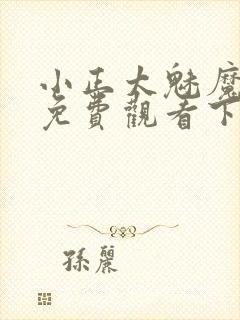 小正大魅魔
免費觀看下
孫麗